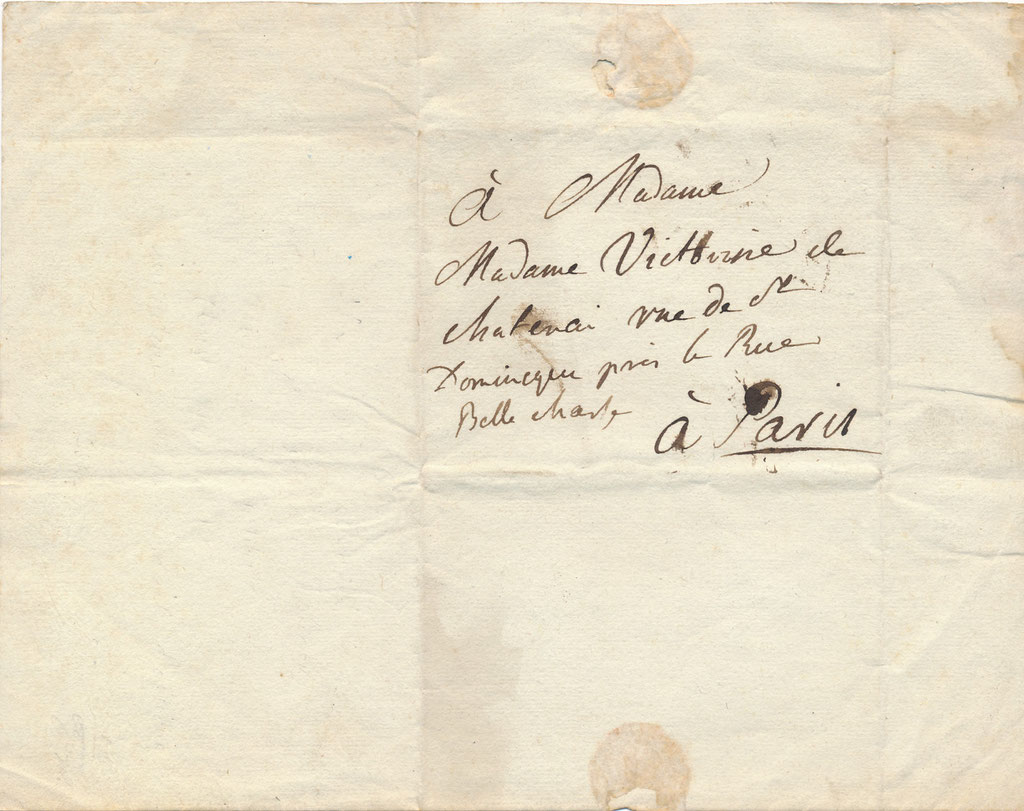 à Madame
Madame Victorine de
chatenai rue de St
Dominique près la Rue
Belle chasse
à Paris